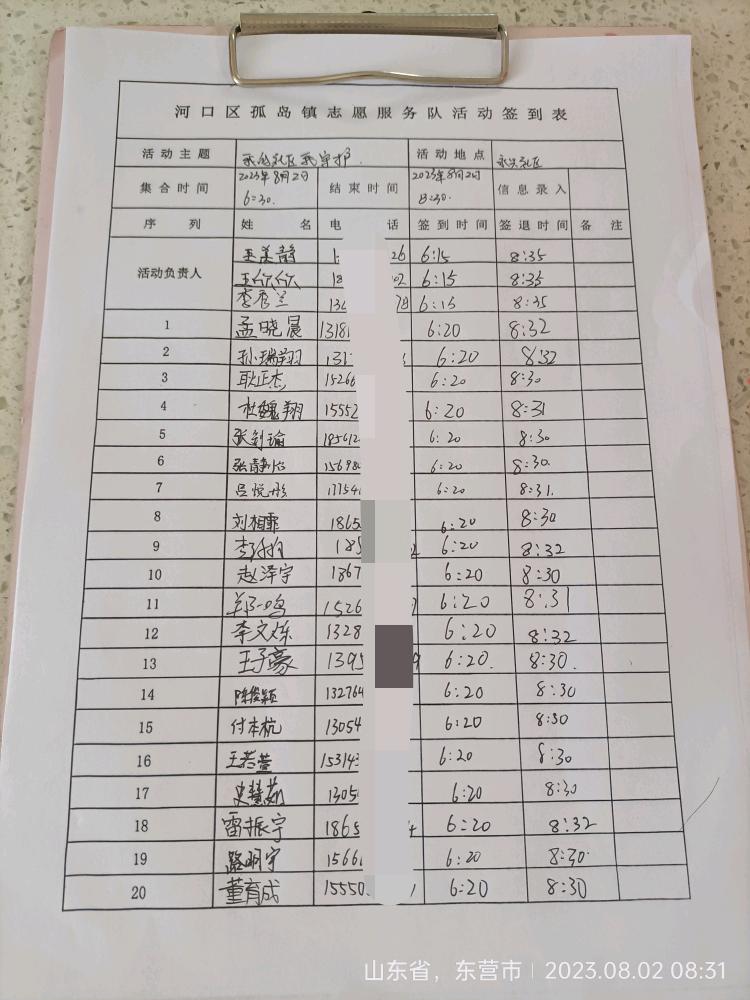 河口区孤岛镇志愿服务队活动签到表
活动主题 社区我守护 活动地点 社区
集合时间 2023年8月2日 6:30. 结束时间 2023年8月2日 8:30. 信息录入
序列 姓名 电话 签到时间 签退时间 备注
活动负责人
王美静 26 6:15 8:35
王欣欣 18 02 6:15 8:35
李香兰 13 78 6:15 8:35
1 孟晓晨 1318 6:20 8:32
2 孙瑞翔 6:20 8:32
3 耿正杰 15266 6:20 8:30
4 杜魏翔 15552 6:20 8:31
5 张钊瑜 185612 6:20 8:30
6 张静怡 15698 6:20 8:30.
7 吕悦彤 17754 6:20 8:31.
8 刘相霏 1865 6:20 8:30
9 李 185 6:20 8:32
10 赵泽宇 1867 6:20 8:30
11 郑一鸣 1526 6:20 8:31
12 李文烁 1328 6:20 8:32
13 王子豪 1395 6:20. 8:30.
14 陈俊颖 132764 6:20 8:30
15 付本杭 13054 6:20 8:30
16 王若萱 153143 6:20 8:30
17 史慧茹 1305 6:20 8:30
18 雷振宇 1865 6:20 8:32
19 路明宇 1566 6:20 8:30.
20 董育成 15550 6:20 8:30
山东省，东营市 2023.08.02 08:31